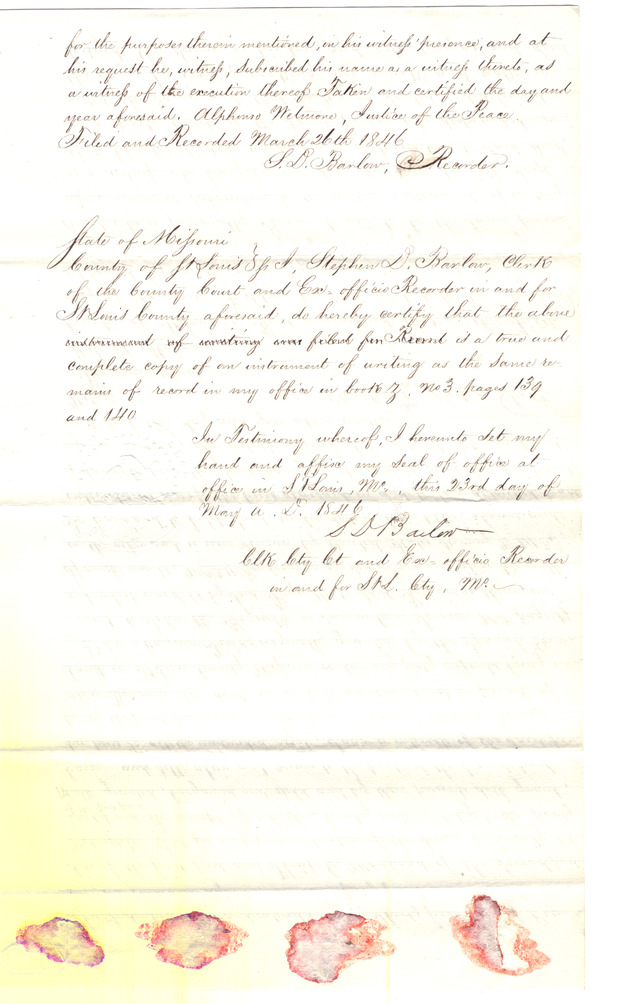 for the purposes therein mentioned, in his witness' presence, and at
his request he, witness, subscribed his name as a witness thereto, as
a witness of the execution thereof Taken and certified the day and
year aforesaid. Alphonso Wetmore, Justice of the Peace.
Filed and Recorded March 26th 1846
S. D. Barlow, Recorder.
State of Missouri
County of St Louis } ss I, Stephen D. Barlow, Clerk
of the County Court and Ex-officio Recorder in and for
St Louis County aforesaid, do hereby certify that the above
instrument of writing was filed for Record is a true and
complete copy of an instrument of writing as the same re-
mains of record in my office in book Z, No 3. pages 139
and 140
In Testimony whereof, I hereunto set my
hand and affix my seal of office at
office in St Louis, Mo., this 23rd day of
May A. D. 1846
S D Barlow
Clk Cty Ct and Ex-officio Recorder
in and for St L. Cty, Mo.